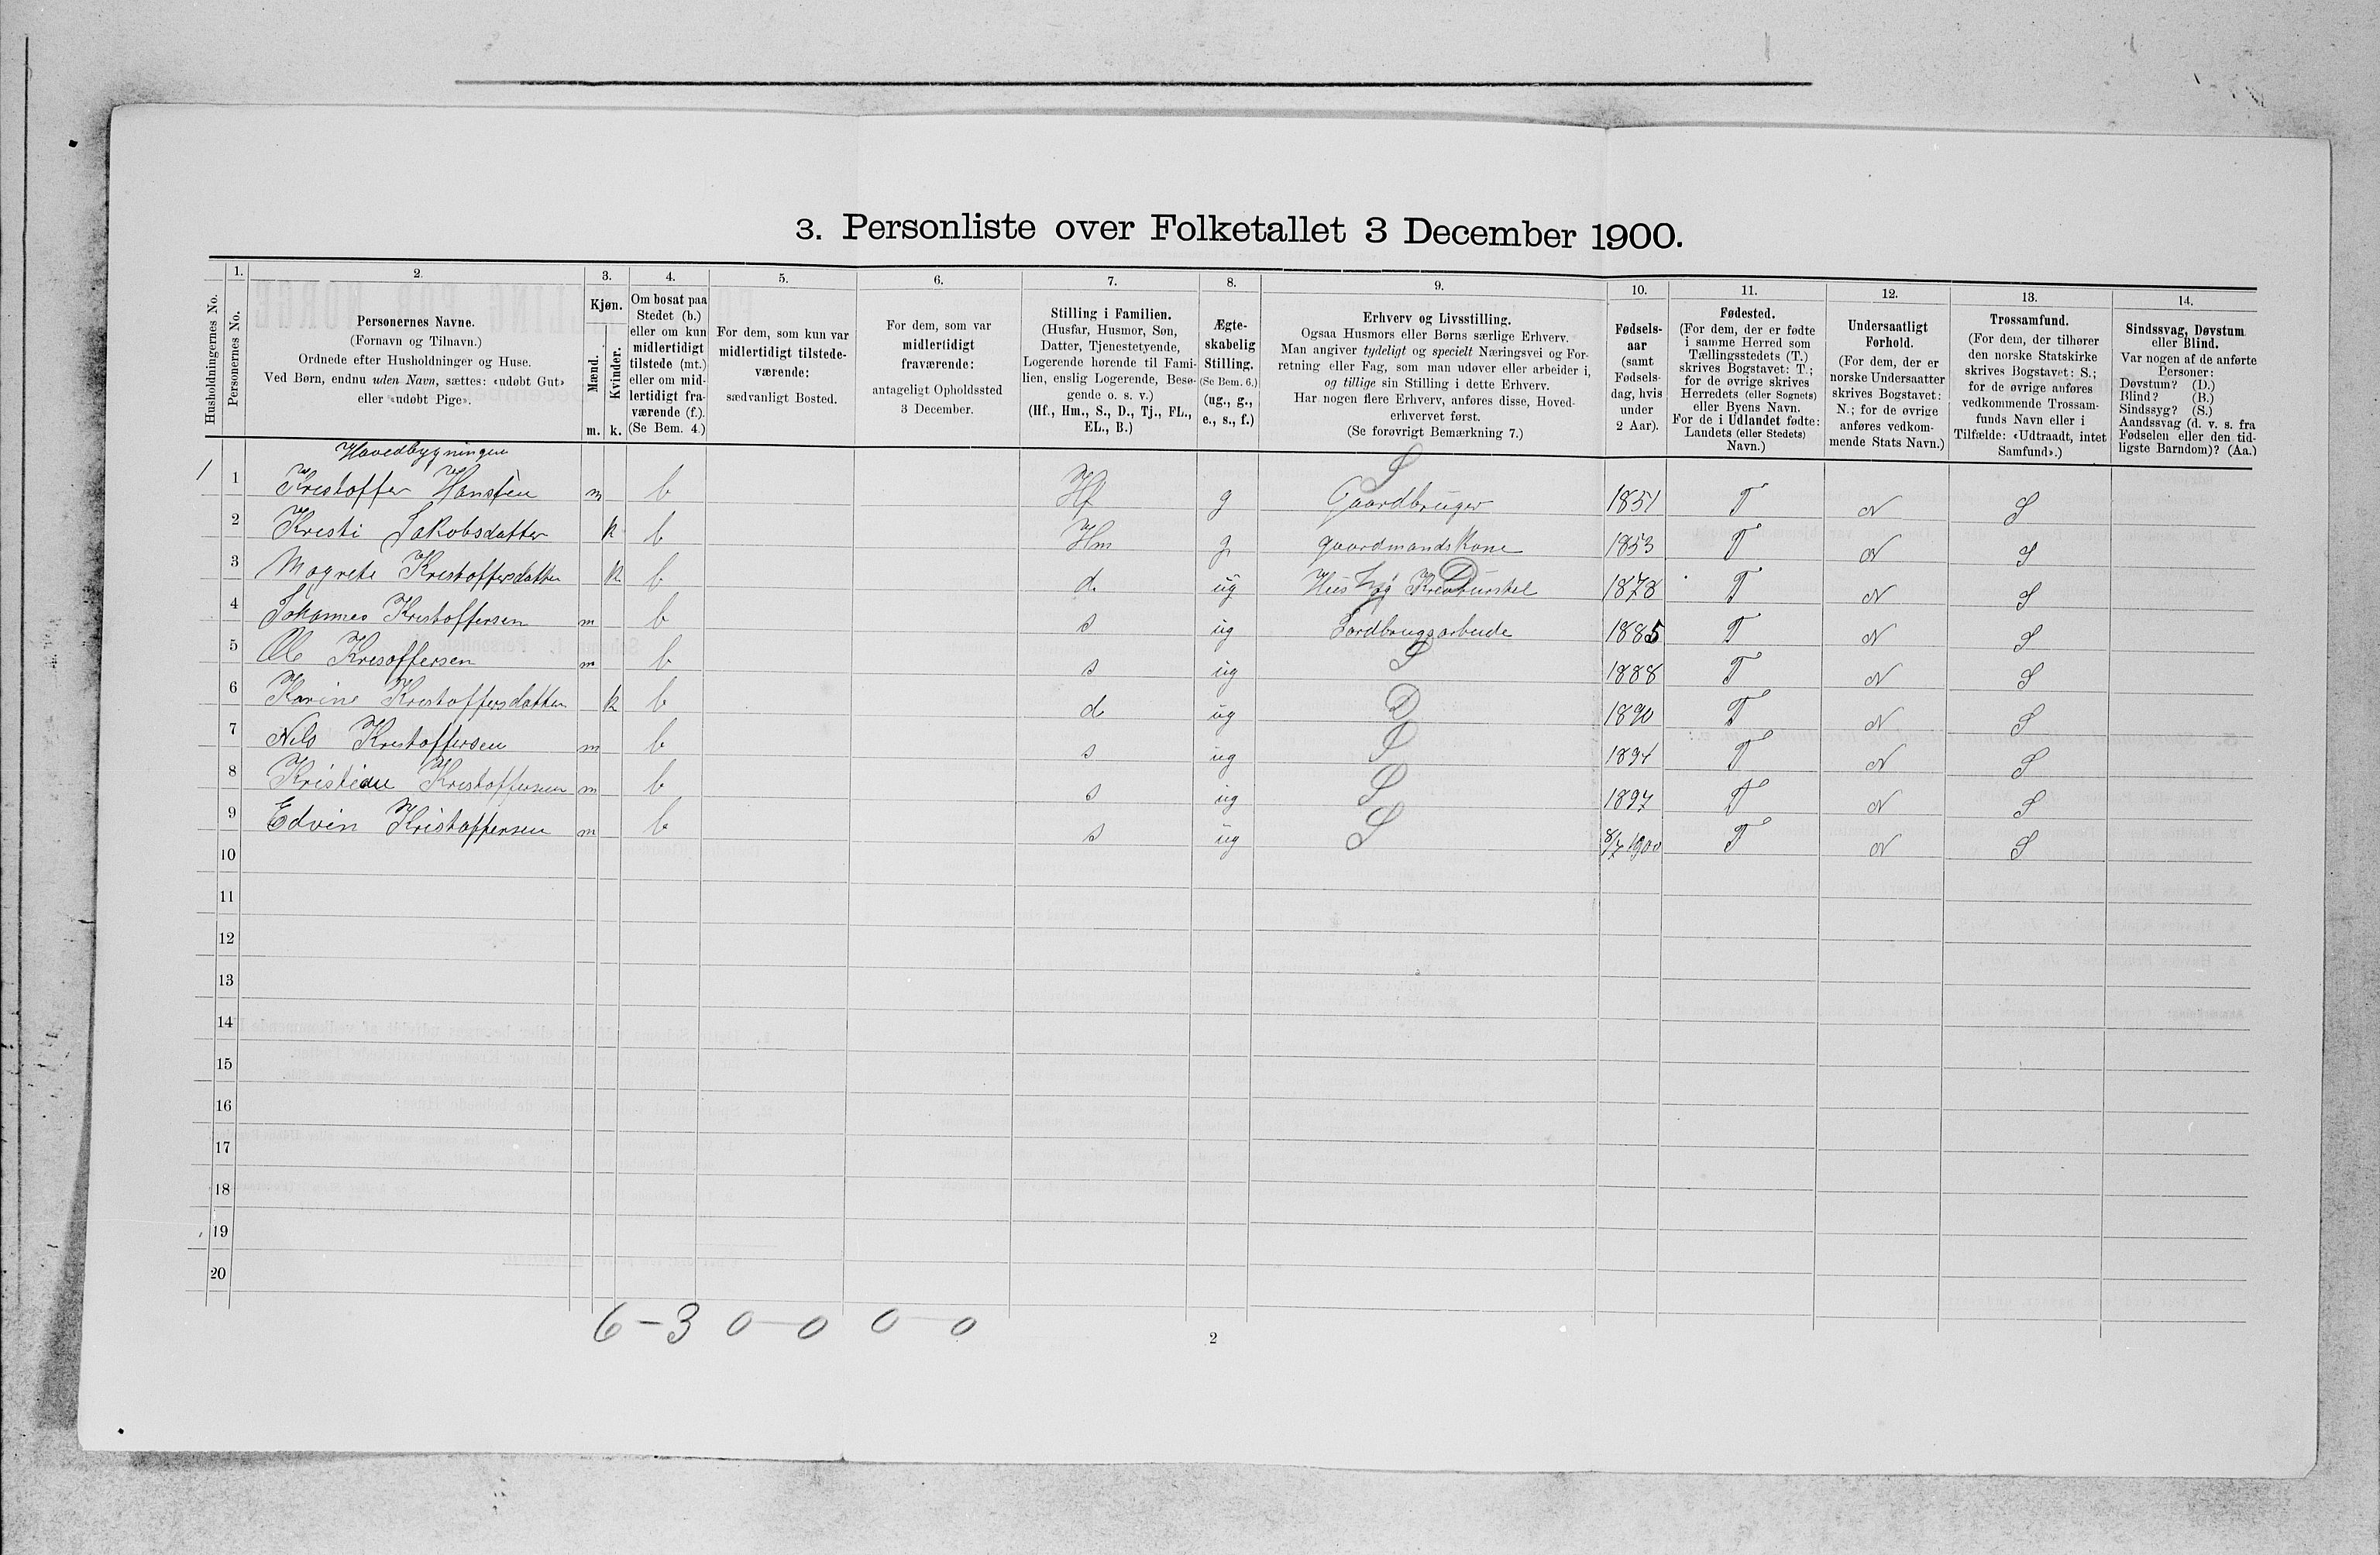 3. Personliste over Folketallet 3 December 1900.
Husholdningernes No.
1. Personernes No.
2. Personernes Navne.
(Fornavn og Tilnavn.)
Ordnede efter Husholdninger og Huse.
Ved Børn, endnu uden Navn, sættes: «udøbt Gut»
eller «udøbt Pige».
3. Kjøn.
Mænd. m.
Kvinder. k.
4. Om bosat paa
Stedet (b.)
eller om kun
midlertidigt
tilstede (mt.)
eller om mid-
lertidigt fra-
værende (f.).
(Se Bem. 4.)
5. For dem, som kun var
midlertidigt tilstede-
værende:
sædvanligt Bosted.
6. For dem, som var
midlertidigt
fraværende:
antageligt Opholdssted
3 December.
7. Stilling i Familien.
(Husfar, Husmor, Søn,
Datter, Tjenestetyende,
Logerende hørende til Fami-
lien, enslig Logerende, Besø-
gende o. s. v.)
(Hf., Hm., S., D., Tj., FL.,
EL., B.)
8. Ægte-
skabelig
Stilling.
(Se Bem. 6.)
(ug., g.,
e., s., f.)
9. Erhverv og Livsstilling.
Ogsaa Husmors eller Børns særlige Erhverv.
Man angiver tydeligt og specielt Næringsvei og For-
retning eller Fag, som man udøver eller arbeider i,
og tillige sin Stilling i dette Erhverv.
Har nogen flere Erhverv, anføres disse, Hoved-
erhvervet først.
(Se forøvrigt Bemærkning 7.)
10. Fødsels-
aar
(samt
Fødsels-
dag, hvis
under
2 Aar).
11. Fødested.
(For dem, der er fødte
i samme Herred som
Tællingsstedets (T.)
skrives Bogstavet: T.;
for de øvrige skrives
Herredets (eller Sognets)
eller Byens Navn.
For de i Udlandet fødte:
Landets (eller Stedets)
Navn.)
12. Undersaatligt
Forhold.
(For dem, der er
norske Undersaatter
skrives Bogstavet:
N.; for de øvrige
anføres vedkom-
mende Stats Navn.)
13. Trossamfund.
(For dem, der tilhører
den norske Statskirke
skrives Bogstavet: S.;
for de øvrige anføres
vedkommende Trossam-
funds Navn eller i
Tilfælde: «Udtraadt, intet
Samfund».)
14. Sindssvag, Døvstum
eller Blind.
Var nogen af de anførte
Personer:
Døvstum? (D.)
Blind? (B.)
Sindssyg? (S.)
Aandssvag (d. v. s. fra
Fødselen eller den tid-
ligste Barndom)? (Aa.)
Hovedbygningen
1 1 Krestoffer Hansen m b Hf g Gaardbruger S 1851 T N S
2 Kresti Jakobsdatter k b Hm g gaardmandskone 1853 T N S
3 Magrete Krestoffersdatter k b d ug Hus og Kreaturstel D 1878 T N S
4 Johannes Krestoffersen m b s ug Jordbrugsarbeide 1885 T N S
5 Ole Kresoffersen m b s ug S 1888 T N S
6 Karine Krestoffersdatter k b d ug D 1890 T N S
7 Nils Krestoffersen m b s ug S 1894 T N S
8 Kristian Krestoffersen m b s ug S 1897 T N S
9 Edvin Kristoffersen m b s ug S 8/7 1900 T N S
10
11
12
13
14
15
16
17
18
19
20
6 – 3 0 – 0 0 – 0
2